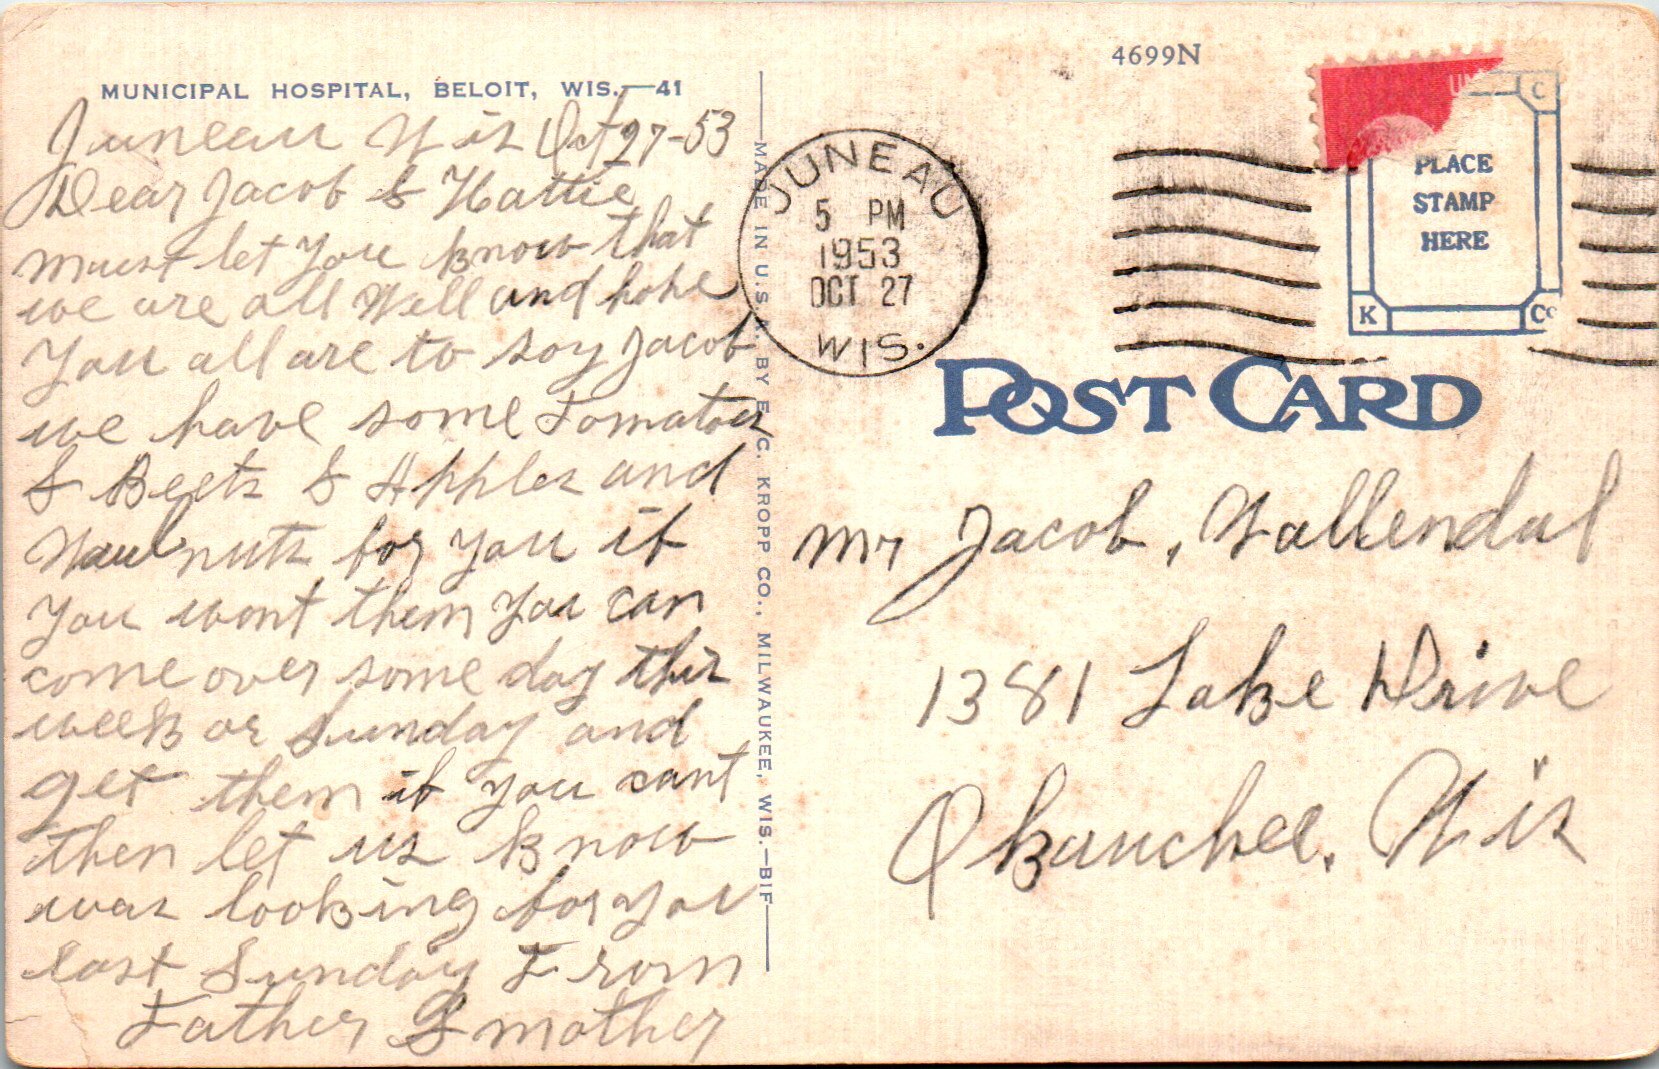 MUNICIPAL HOSPITAL, BELOIT, WIS.—41
Juneau Wis Oct 27-53
Dear Jacob & Hattie
must let you know that
we are all Well and hope
You all are to soy Jacob
we have some Tomatoes
& Beets & Apples and
Waulnuts for you if
you wont them you can
come over some day this
week or Sunday and
get them if you cant
then let us know
was looking for you
last Sunday From
Father & mother
MADE IN U.S.A. BY E. C. KROPP CO., MILWAUKEE, WIS.—BIF
4699N
JUNEAU
5 PM
1953
OCT 27
WIS.
C
PLACE
STAMP
HERE
K
Co
POST CARD
Mr Jacob, Wallendal
1381 Lake Drive
Okauchee. Wis